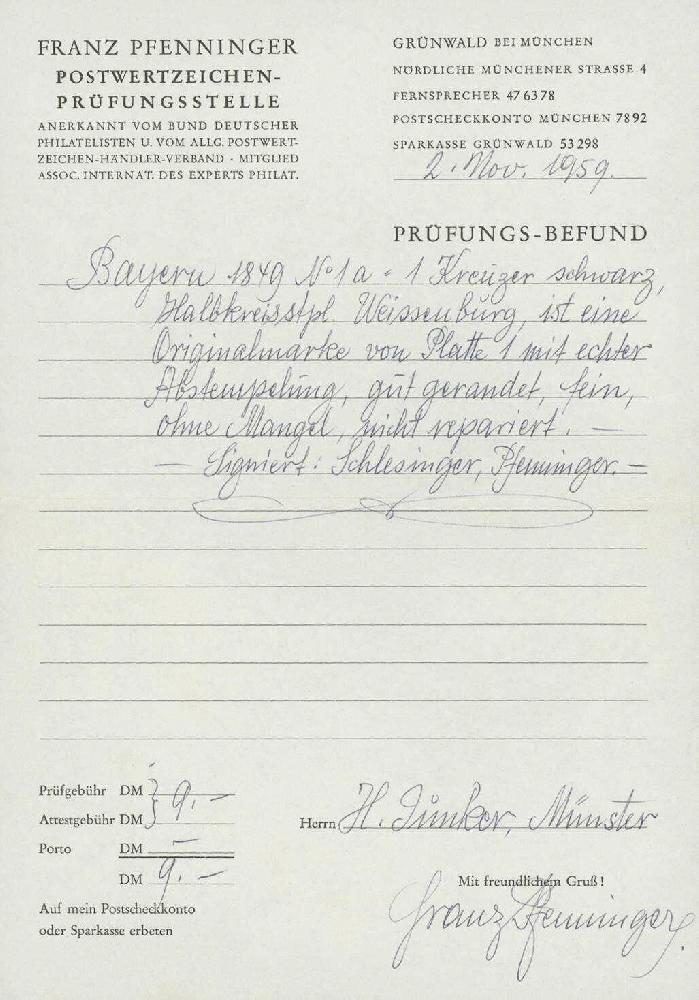 FRANZ PFENNINGER
POSTWERTZEICHEN-
PRÜFUNGSSTELLE
ANERKANNT VOM BUND DEUTSCHER
PHILATELISTEN U. VOM ALLG. POSTWERT-
ZEICHEN-HÄNDLER-VERBAND · MITGLIED
ASSOC. INTERNAT. DES EXPERTS PHILAT.
GRÜNWALD BEI MÜNCHEN
NÖRDLICHE MÜNCHENER STRASSE 4
FERNSPRECHER 476378
POSTSCHECKKONTO MÜNCHEN 7892
SPARKASSE GRÜNWALD 53298
2. Nov. 1959.
PRÜFUNGS-BEFUND
Bayern 1849 No 1a - 1 Kreuzer schwarz,
Halbkreisstpl Weissenburg, ist eine
Originalmarke von Platte 1 mit echter
Abstempelung, gut gerandet, fein,
ohne Mängel, nicht repariert. —
— Signiert: Schlesinger, Pfenninger. —
Prüfgebühr DM } 9.—
Attestgebühr DM
Porto DM —
DM 9.—
Auf mein Postscheckkonto
oder Sparkasse erbeten
Herrn H. Junker, Münster
Mit freundlichem Gruß!
Franz Pfenninger.